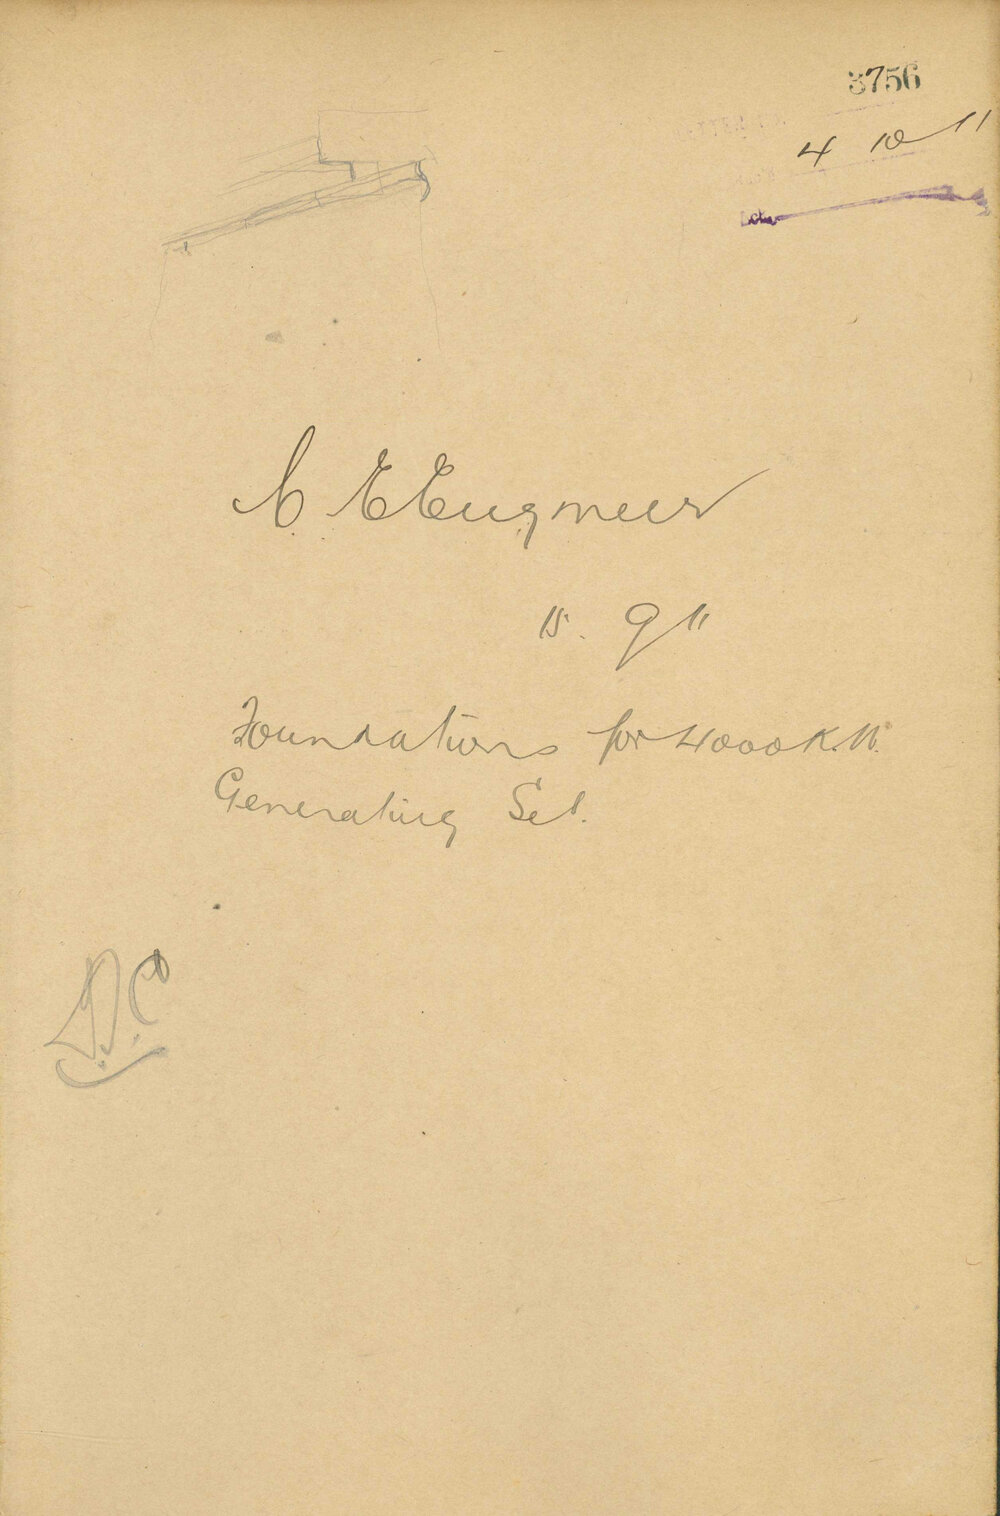 3756
4 10 11
C. E Engineer
15. 9 11
Foundations for 4000 K.W.
Generating Set.
D.C.